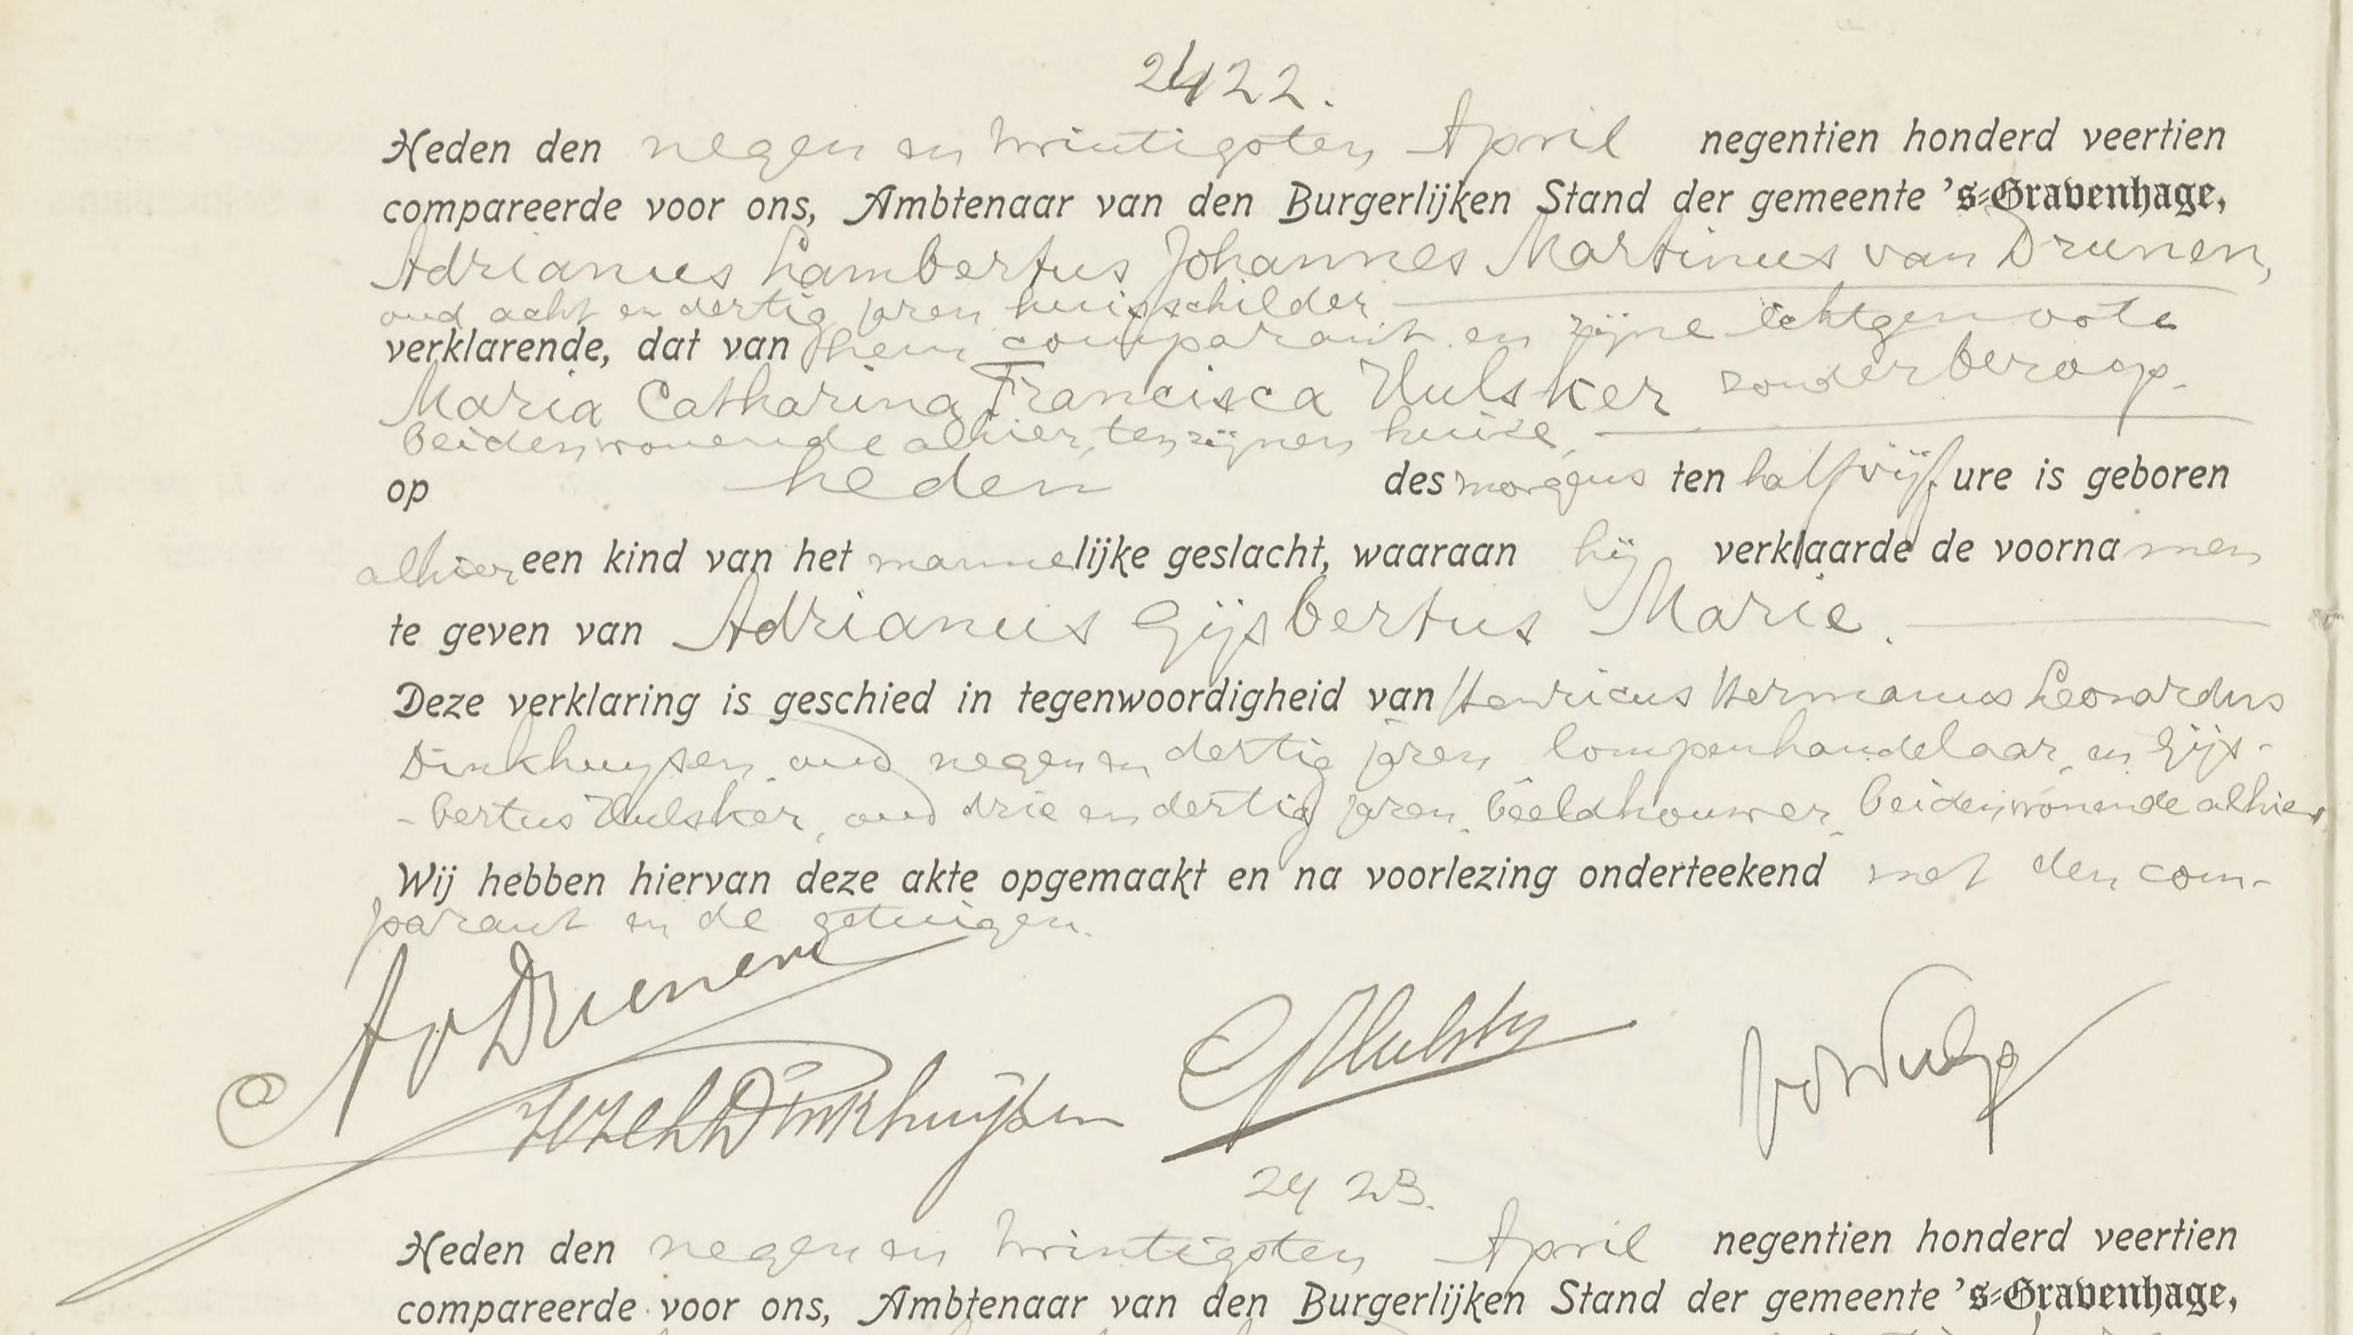 2422.
Heden den negen en twintigsten April negentien honderd veertien
compareerde voor ons, Ambtenaar van den Burgerlijken Stand der gemeente 's-Gravenhage,
Adrianus Lambertus Johannes Martinus van Drunen,
oud acht en dertig jaren huisschilder
verklarende, dat van hem comparant en zijne echtgenoote
Maria Catharina Francisca Hulsker zonder beroep.
beiden wonende alhier, ten zijnen huize,
op heden des morgens ten half vijf ure is geboren
alhier een kind van het mannelijke geslacht, waaraan hij verklaarde de voornamen
te geven van Adrianus Gijsbertus Marie.
Deze verklaring is geschied in tegenwoordigheid van Henricus Hermanus Leonardus
Dinkhuysen, oud negen en dertig jaren, lompenhandelaar, en Gijs-
-bertus Hulsker, oud drie en dertig jaren, beeldhouwer, beiden wonende alhier,
Wij hebben hiervan deze akte opgemaakt en na voorlezing onderteekend met den com-
parant en de getuigen.
A v Drunen
G Hulsker
HHL Dinkhuijsen
2423.
Heden den negen en twintigsten April negentien honderd veertien
compareerde voor ons, Ambtenaar van den Burgerlijken Stand der gemeente 's-Gravenhage,